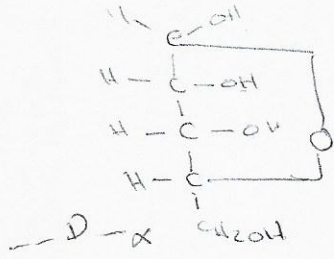 H OH
C
H — C — OH
H — C — OH O
H — C
CH2OH
-- D - α